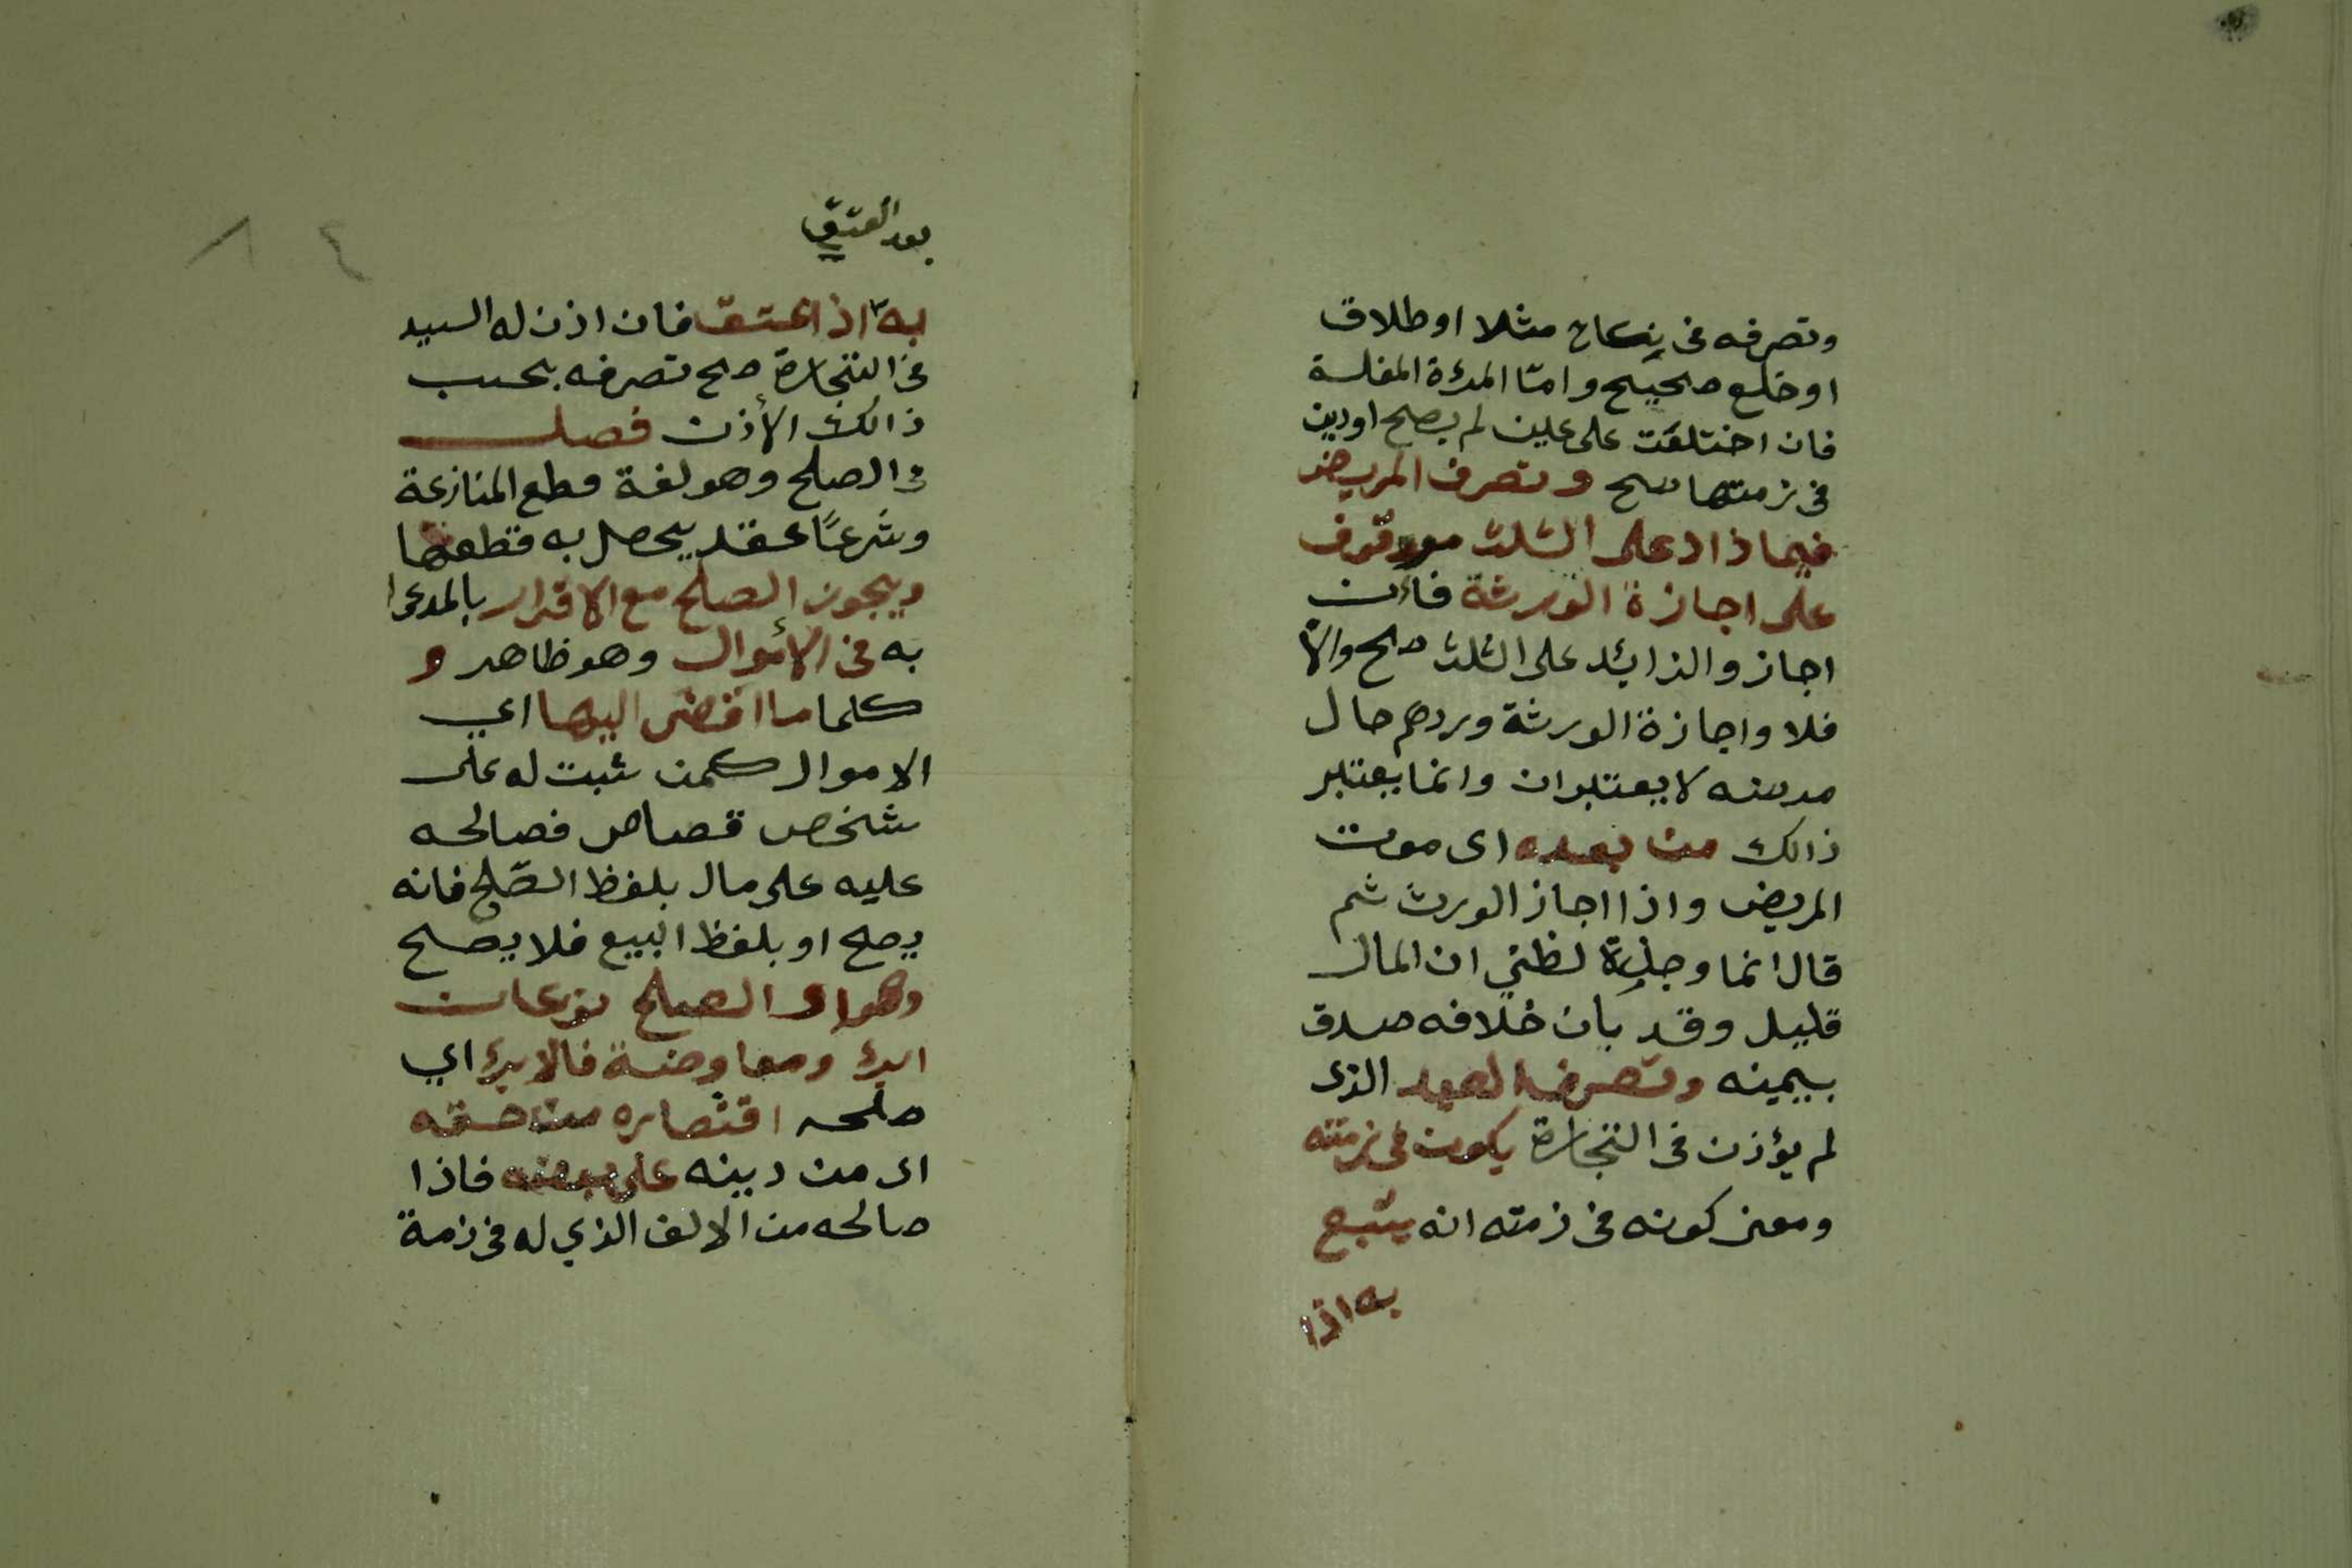 وتصرفه في نكاح مثلا او طلاق
او خلع صحيح وامّا المرءة المفلسة
فان اختلعت على عين لم يصح او دين
في ذمتها صح وتصرف المريض
فيما زاد على الثلث موقوف
على اجازة الورثة فاءن
اجازوا الزائد على الثلث صح والّا
فلا واجازة الورثة وردهم حال
مرضه لا يعتبران وانما يعتبر
ذالك من بعده اى موت
المريض واذا اجاز الورث ثم
قال انما
قليل وقد بان خلافه صدق
بيمينه وتصرف العبد الذى
لم يؤذن في التجارة يكون في ذمته
ومعنى كونه في ذمته انه يتبع
به اذا
بعد العتق
به اذا عتق فان اذن له السيد
في التجارة صح تصرفه بحسب
ذالك الأذن فصل
في الصلح وهو لغة قطع المنازعة
وشرعًا عقد يحصل به قطعها
ويجوز الصلح مع الاقرار بالمدعا
به في الأموال وهو ظاهر و
كلما ما افضى اليها اي
الاموال كمن ثبت له على
شخص قصاص فصالحه
عليه على مال بلفظ الصّلح فانه
يصح او بلفظ البيع فلا يصح
وهو اى الصلح نوعان
ابرء ومعاوضة فالابرء اي
صلحه اقتصاره من حقه
اى من دينه على بعضه فاذا
صالحه من الالف الذي له في ذمة